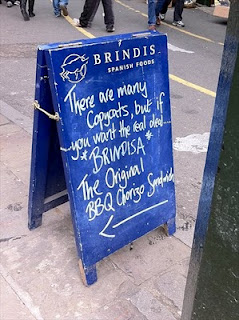 BRINDIS
SPANISH FOODS
There are many
Copycats, but if
you want the real deal....
*BRINDISA*
The Original
BBQ Chorizo Sandwich